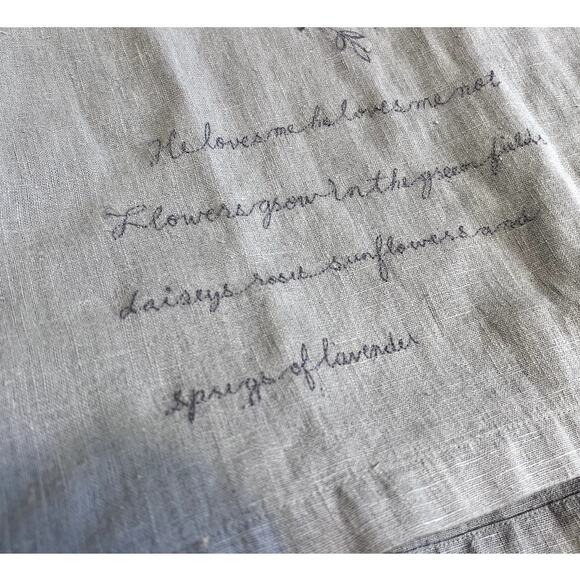 He loves me he loves me not
Flowers grow in the green fields
daiseys roses sunflowers and
sprigs of lavender